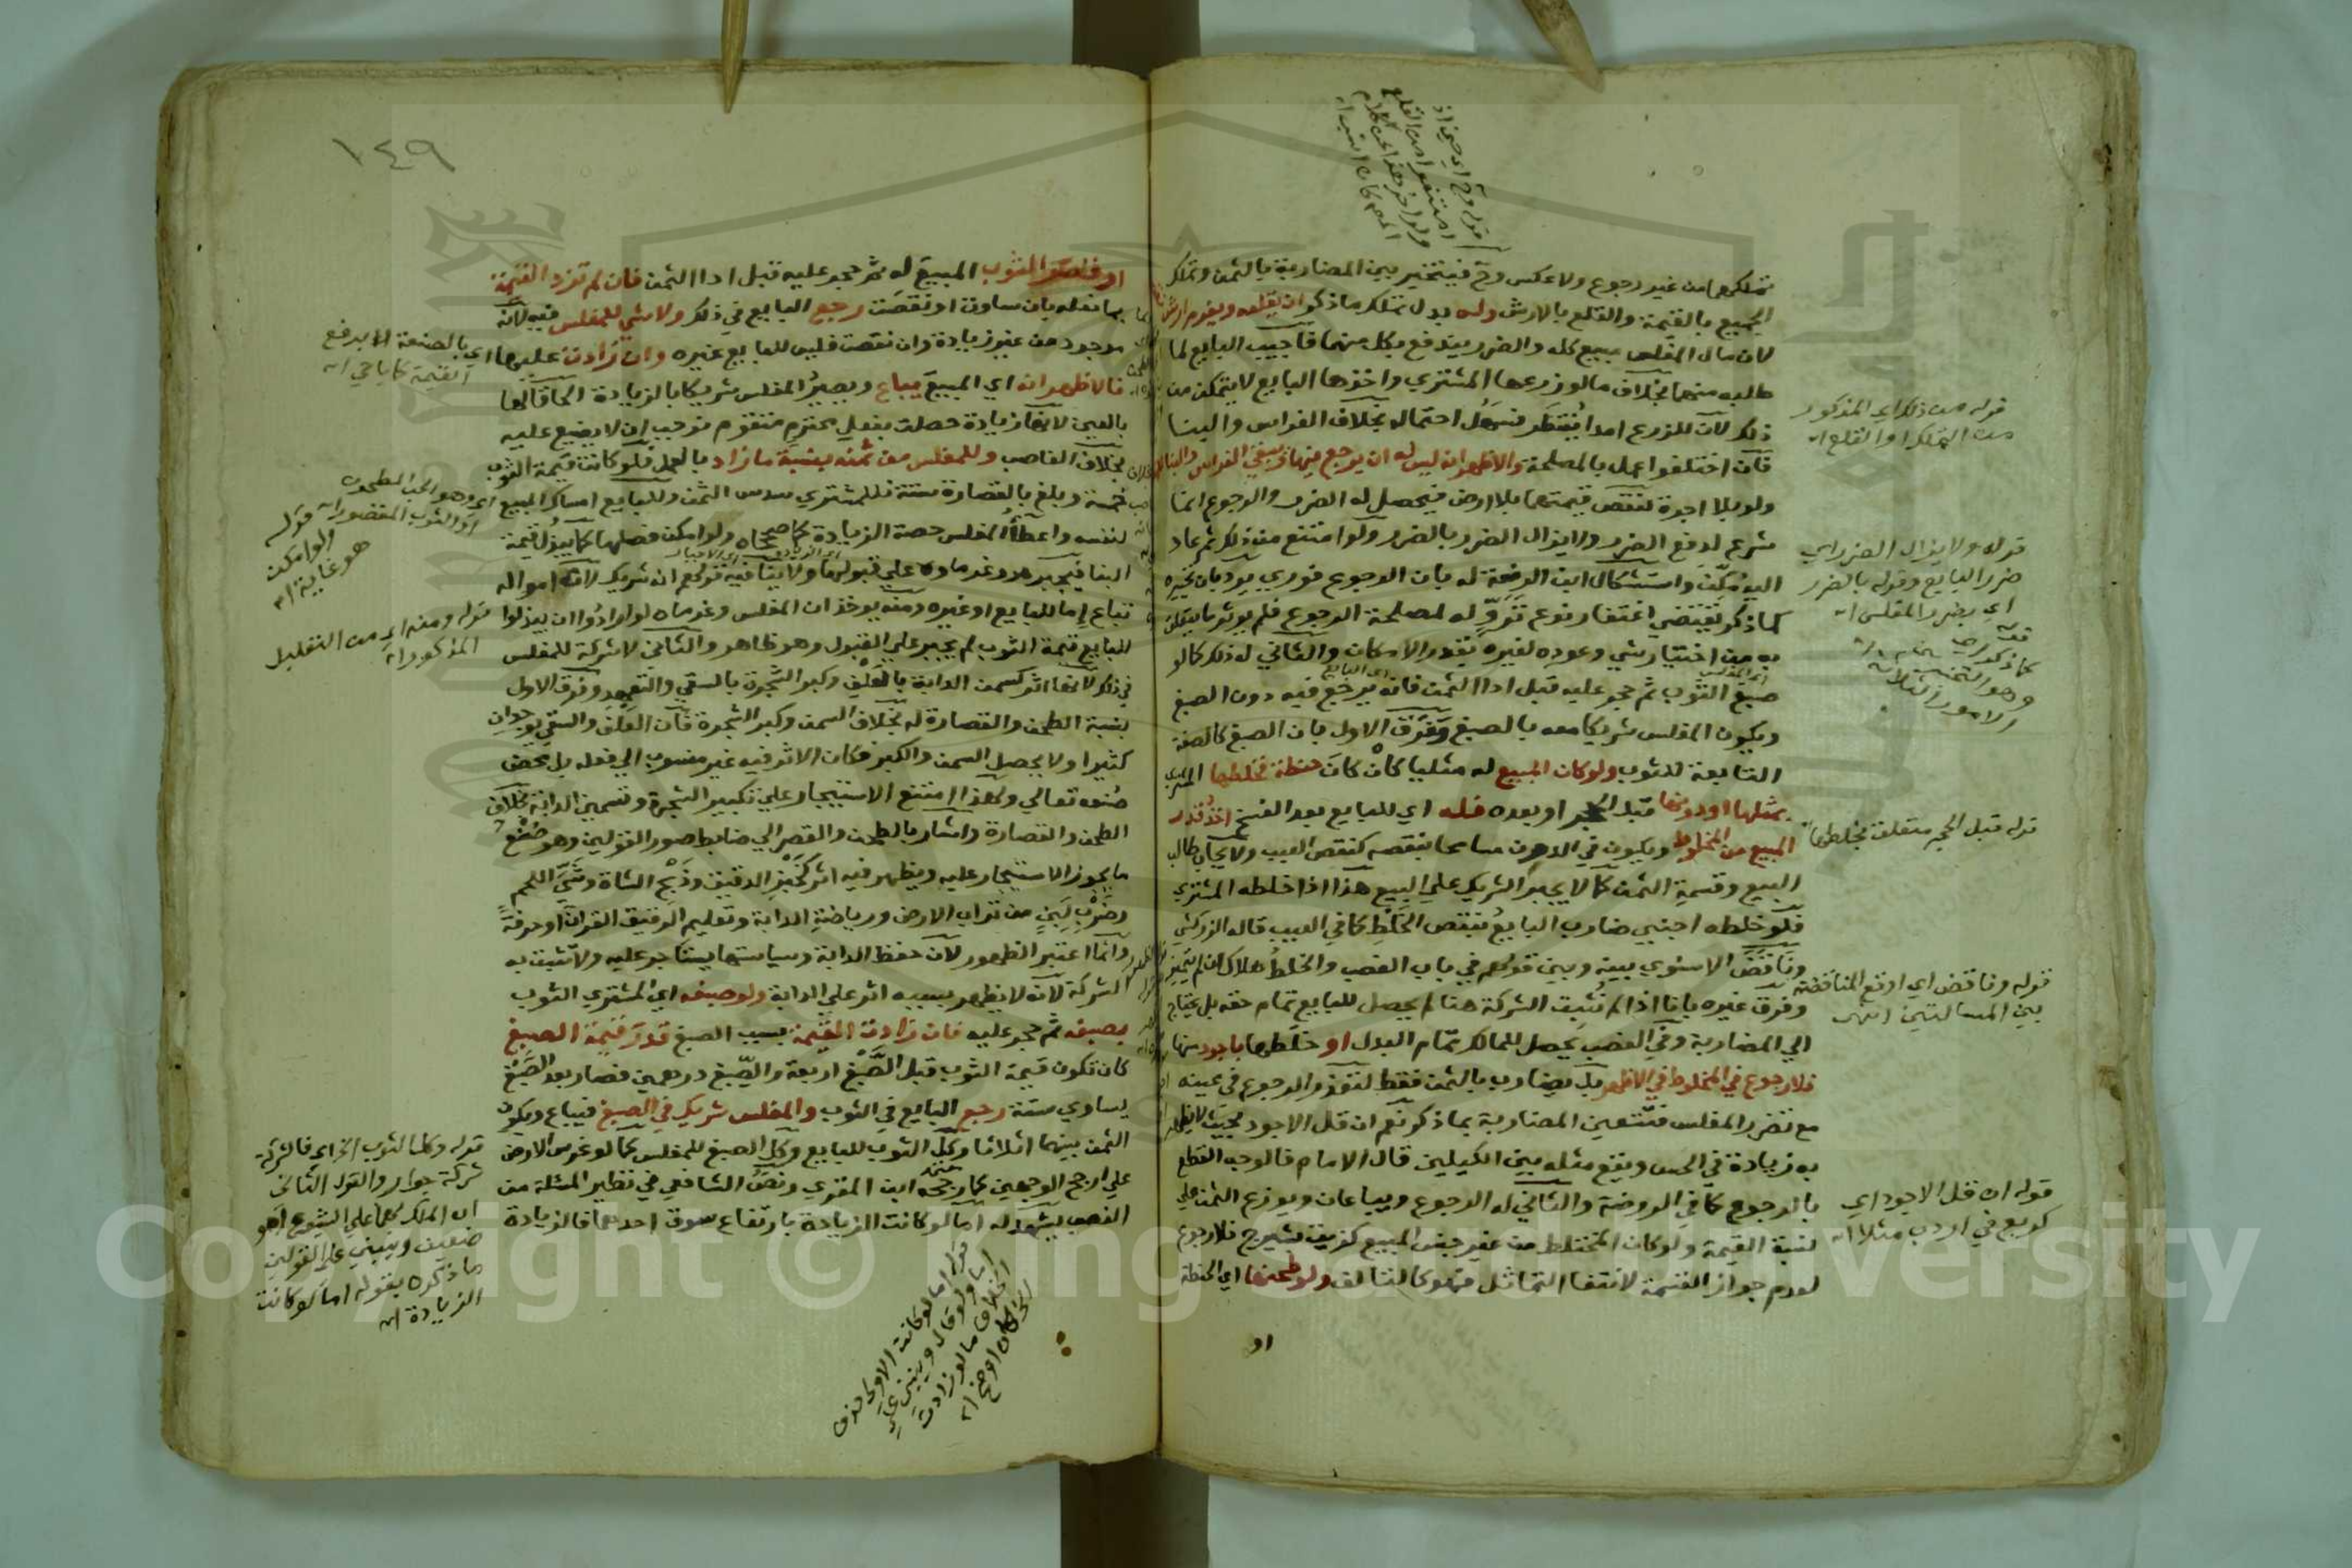 تملكهما من غير رجوع ولا عكس وح فيتخير بين المضاربة بالثمن وتملك
الجميع بالقيمة والقلع بالارش وله بدل تملك ماذكر ان يقلعه ويغرم ارش
لان مال المفلس مبيع كله والضرر يندفع بكل منهما فاجيب البايع لما
طلبه منهما بخلاف مالو زرعها المشتري واخذها البايع لا يتمكن من
ذلك لان للزرع امدا يُنتظر فسهل احتماله بخلاف الغراس والبنا
فان اختلفوا عمل بالمصلحة والاظهر انه ليس له ان يرجع فيها ويبقي الغراس والبنا
ولو بلا اجرة لنقص قيمتهما بلا ارض فيحصل له الضرر والرجوع انما
شرع لدفع الضرر ولا يزال الضرر بالضرر ولو امتنع من ذلك ثم عاد
اليه مُكّن واستشكال ابن الرفعة له بان الرجوع فوري يرد بان تخيره
كما ذكر يقتضي اغتفار نوع تَرَوٍّ له لمصلحة الرجوع فلم يوثر ما يتعلق
به من اختيار شي وعوده لغيره بقدر الامكان والثاني له ذلك كما لو
صبغ الثوب ثم حجر عليه قبل ادا الثمن فانه يرجع فيه دون الصبغ
ويكون المفلس شريكا معه بالصبغ وفَرَق الاول بان الصبغ كالصفة
التابعة للثوب ولو كان المبيع له مثليا كأن كان حنطة فخلطها المشتري
بمثلها اودونها قبل الحجر او بعده فله اي للبايع بعد الفسخ اخذ قدر
المبيع من المخلوط ويكون في الدون مسامحا بنقصه كنقص العيب ولا يجاب طالب
البيع وقسمة الثمن كما لا يجبر الشريك علي البيع هذا اذا خلطه المشتري
فلو خلطه اجنبي ضارب البايع بنقص الخَلْط كما في العيب قاله الزركشي
وناقضَ الاسنوي بينه وبين قولهم في باب الغصب والخلطُ هلاك ان لم يتميز
وفرق غيره بانا اذا لم نُثبت الشركة هنا لم يحصل للبايع تمام حقه بل يحتاج
الي المضاربة وفي الغصب يحصل للمالك تمام البدل او خلطها باجود منها
فلا رجوع في المخلوط في الاظهر بل يضارب بالثمن فقط لتعذر الرجوع في عينه
مع تضرر المفلس فتتعين المضاربة بما ذكر نعم ان قل الاجود بحيث لا يظهر
به زيادة في الحس ويقع مثله بين الكيلين قال الامام فالوجه القطع
بالرجوع كما في الروضة والثاني له الرجوع ويباعان ويوزع الثمن علي
نسبة القيمة ولو كان المختلط من غير جنس المبيع كزيت بشيرج فلا رجوع
لعدم جواز القسمة لانتفا التماثل فهو كالتالف ولو طحنها اي الحنطة
او
قوله من ذلك اي المذكور
من التملك او القلع اه
قوله ولا يزال الضرر اي
ضرر البايع وقوله بالضرر
اي بضرر المفلس اه
الامور الثلاثة
قوله قبل الحجر متعلق بخلطها
قوله وناقض اي اوقع المناقضة
بين المسالتين انتهى
قوله ان قل الاجود اي
كربع في اردب مثلا اه
١٤٩
او قصر الثوب المبيع له ثم حجر عليه قبل ادا الثمن فان لم تزد القيمة
بما فعله بان ساوت او نقصت رجع البايع في ذلك ولا شي للمفلس فيه لانه
موجود من غير زيادة وان نقصت فليس للبايع غيره وان زادت عليها
فالاظهر انه اي المبيع يباع ويصير المفلس شريكا بالزيادة الحاقا لها
بالعين لانها زيادة حصلت بفعل محترم متقوم فوجب ان لا يضيع عليه
بخلاف الغاصب وللمفلس من ثمنه بنسبة ما زاد بالعمل فلو كانت قيمة الثوب
خمسة وبلغ بالقصارة ستة فللمشتري سدس الثمن وللبايع امساك المبيع
لنفسه واعطاء المفلس حصة الزيادة كما صححاه ولو امكن فصلها كما يبذل قيمة
البنا فيجبر هو وغرماوه علي قبولها ولا ينافيه قولهم ان شريك لانه امواله
تباع إما للبايع او غيره ومنه يوخذ ان المفلس وغرماه لو ارادوا ان يبذلوا
للبايع قيمة الثوب لم يجبر علي القبول وهو ظاهر والثاني لا شركة للمفلس
في ذلك لانها اثر كسمن الدابة بالعَلْف وكبر الشجرة بالسقي والتعهد وفرق الاول
بنسبة الطحن والقصارة له بخلاف السمن وكبر الشجرة فان العلف والسقي يوجدان
كثيرا ولا يحصل السمن والكبر فكان الاثر فيه غير منسوب الي فعله بل محض
صُنعه تعالي ولهذا امتنع الاستيجار علي تكبير الشجرة وتسمين الدابة بخلاف
الطحن والقصارة واشار بالطحن والقصر الي ضابط صور القولين وهو صُنْع
ما يجوز الاستيجار عليه ويظهر فيه اثر كخَبْز الدقيق وذبْح الشاة وشَيّ اللحم
وضَرْب لَبِن من تراب الارض ورياضة الدابة وتعليم الرقيق القران او حرفةً
وانما اعتبر الظهور لان حفظ الدابة وسياستها يستاجر عليه ولا تثبت به
الشركة لانه لا يظهر بسببه اثر علي الدابة ولو صبغه اي المشتري الثوب
بصبغه ثم حجر عليه فان زادت القيمة بسبب الصبغ قدرَ قيمة الصبغ
كان تكون قيمة الثوب قبل الصَّبْغ اربعة والصِّبغ درهمين فصار بعد الصَّبْغ
يساوي ستة رجع البايع في الثوب والمفلس شريك في الصبغ فيباع ويكون
الثمن بينهما اثلاثا وكل الثوب للبايع وكل الصبغ للمفلس كما لو غرس الارض
علي ارجح الوجهين كما رجحه ابن المقري ونصُّ الشافعي في نظير المسئلة من
الغصب يشهد له اما لو كانت الزيادة بارتفاع سوق احدهما فالزيادة
اي بالصنعة الا بدفع
القيمة كما ياتي اه
اي وهو الحب المطحون
او الثوب المقصور اه
قوله
ولو امكن
هو غاية اه
قوله ومنه اي من التعليل
المذكور اه
قوله وكل الثوب الخ اي فالشركة
شركة جوار والقول الثاني
ان الملك لهما علي الشيوع اهو
ضعيف وينبني علي القولين
ما ذكره بقوله اما لو كانت
الزيادة اه